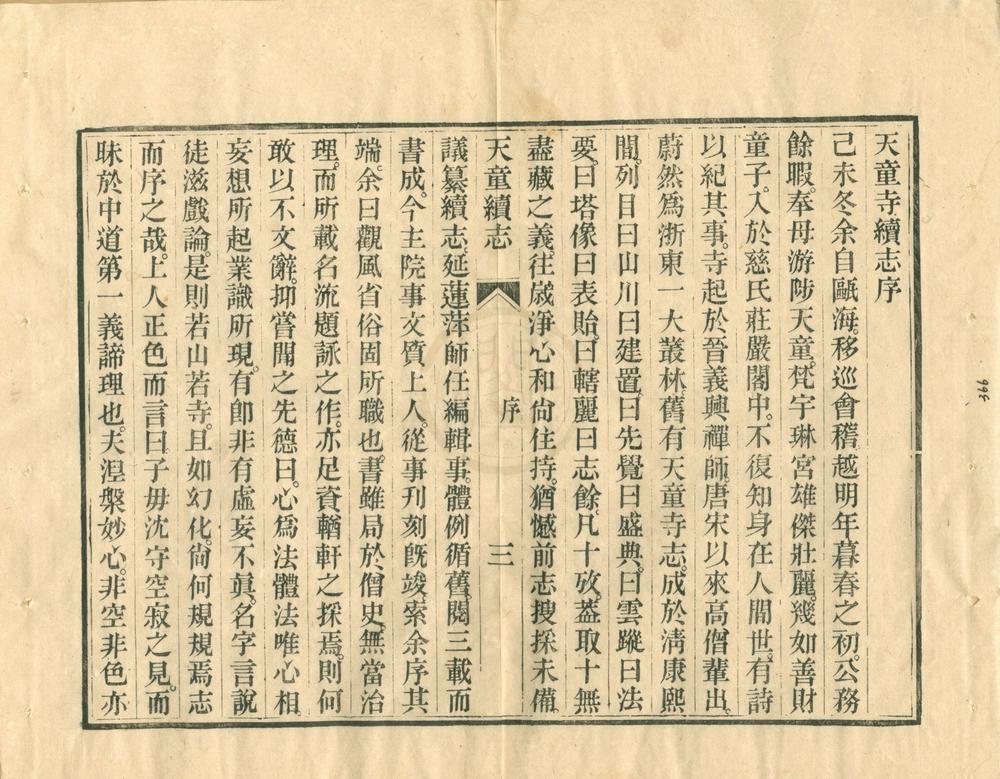 天童寺續志序
己未冬余自甌海移巡會稽越明年暮春之初公務
餘暇奉母游陟天童梵宇琳宮雄傑壯麗幾如善財
童子入於慈氏莊嚴閣中不復知身在人間世有詩
以紀其事寺起於晉義興禪師唐宋以來高僧輩出
蔚然爲浙東一大叢林舊有天童寺志成於淸康熙
間列目曰山川曰建置曰先覺曰盛典曰雲蹤曰法
要曰塔像曰表貽曰轄麗曰志餘凡十攷葢取十無
盡藏之義往歲淨心和尙住持猶憾前志搜採未備
天童續志 序 三
議纂續志延蓮萍師任編輯事體例循舊閱三載而
書成今主院事文質上人從事刊刻旣竣索余序其
端余曰觀風省俗固所職也書雖局於僧史無當治
理而所載名流題詠之作亦足資輶軒之採焉則何
敢以不文辭抑嘗聞之先德曰心爲法體法唯心相
妄想所起業識所現有卽非有虛妄不眞名字言說
徒滋戲論是則若山若寺且如幻化尙何規規焉志
而序之哉上人正色而言曰子毋沈守空寂之見而
昧於中道第一義諦理也夫湼槃妙心非空非色亦